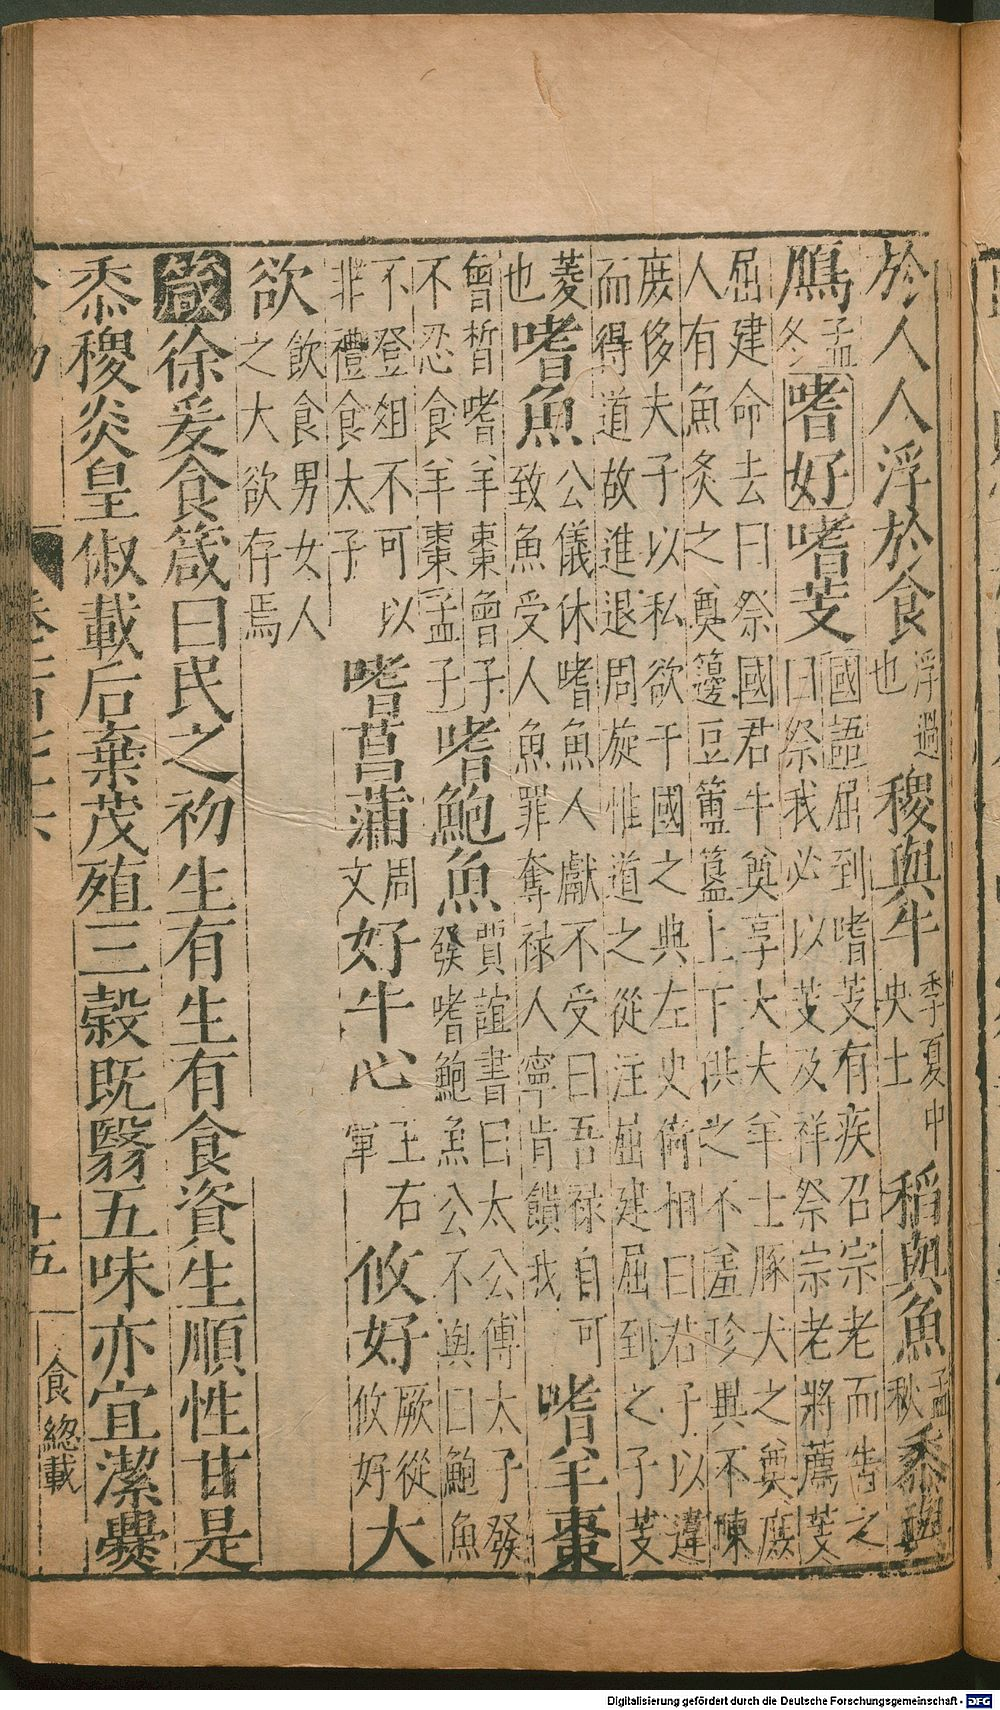 於人人浮於食浮過也稷與牛季夏中央土稻與魚孟秋黍與
鴈孟冬嗜好嗜芰國語屈到嗜芰有疾召宗老而告之曰祭我必以芰及祥祭宗老將薦芰
屈建命去曰祭國君牛奠享大夫羊士豚犬之奠庶人有魚炙之奠籩豆簠簋上下供之不羞珍異不陳
庶侈夫子以私欲干國之典左史倚相曰君子以違而得道故進退周旋惟道之從注屈建屈到之子芰
菱也嗜魚公儀休嗜魚人獻不受曰吾禄自可致魚受人魚罪奪禄人寧肯饋我嗜羊棗
曾晳嗜羊棗曾子不忍食羊棗孟子嗜鮑魚賈誼書曰太公傅太子發發嗜鮑魚公不與曰鮑魚
不登俎不可以非禮食太子嗜菖蒲周文好牛心王右軍攸好厥從攸好大
欲飲食男女人之大欲存焉
箴徐爰食箴曰民之初生有生有食資生順性甘是
黍稷炎皇俶載后棄茂殖三穀既翳五味亦宜潔爨
十五 食總載
Digitalisierung gefördert durch die Deutsche Forschungsgemeinschaft - DFG